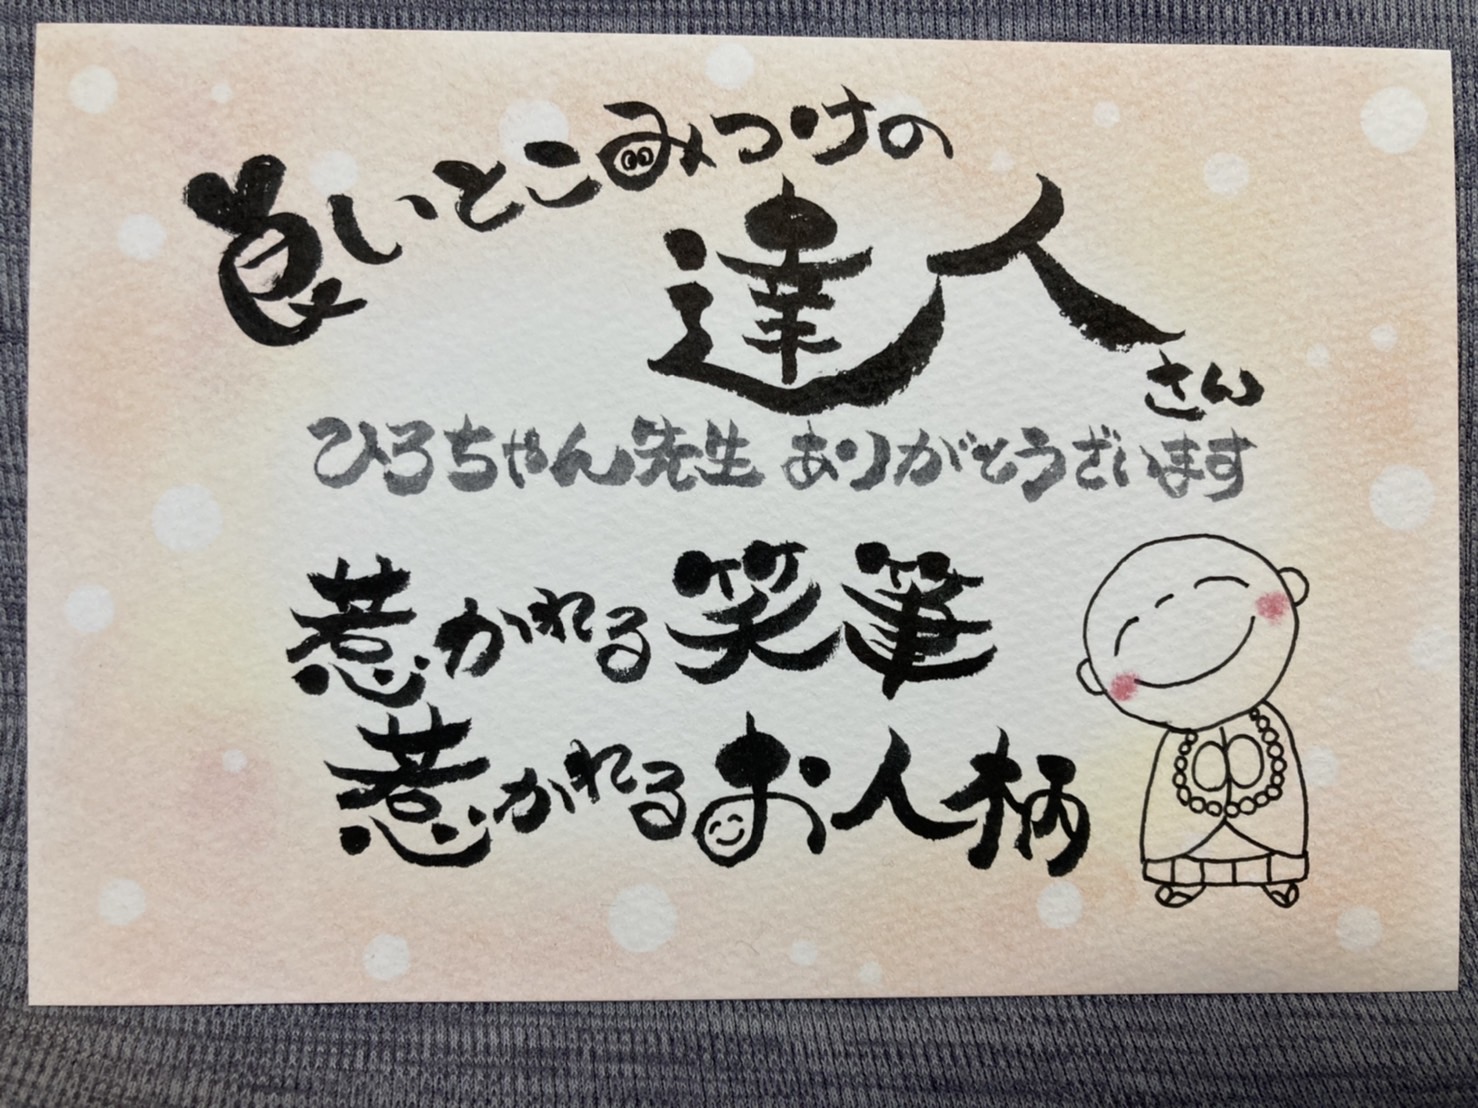 良いとこみつけの
達人さん
ひろちゃん先生 ありがとうございます
惹かれる笑筆
惹かれるお人柄